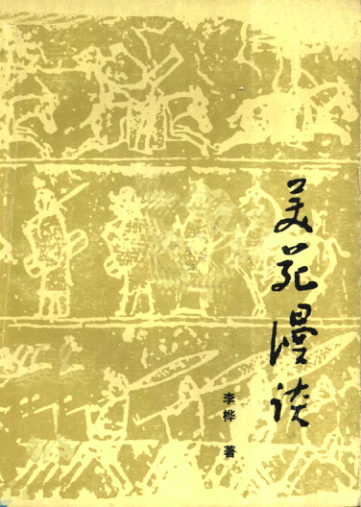 美苑漫谈
李桦 著